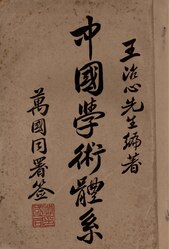 王治心先生編著
中國學術體系
萬國同署簽